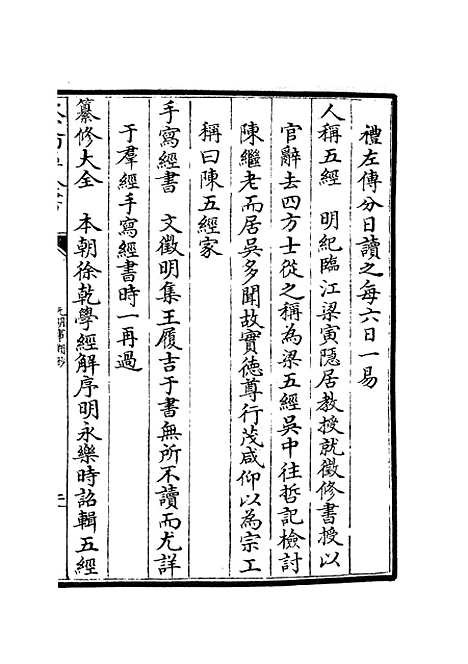 禮左傳分日讀之每六日一易
人稱五經　明紀臨江梁寅隱居教授就徵修書授以
官辭去四方士從之稱為梁五經吳中往哲記檢討
陳繼老而居吳多聞故實德尊行茂咸仰以為宗工
稱曰陳五經家
手寫經書　文徵明集王履吉于書無所不讀而尤詳
于羣經手寫經書時一再過
纂修大全　本朝徐乾學經解序明永樂時詔輯五經